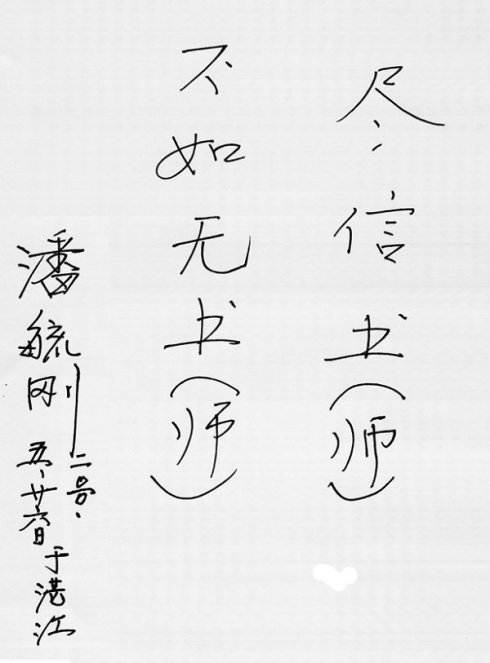 尽信书(师)
不如无书(师)
潘毓刚
五、廿六日
于湛江